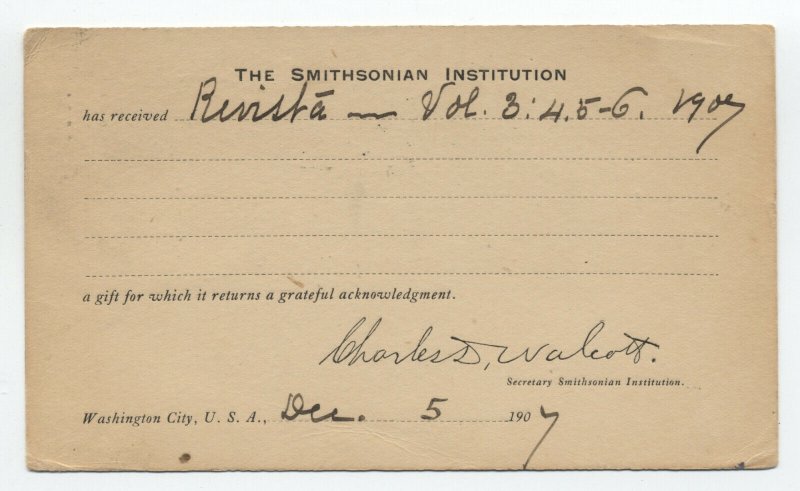 THE SMITHSONIAN INSTITUTION
has received Revista — Vol. 3: 4. 5-6. 1907
a gift for which it returns a grateful acknowledgment.
Charles D. Walcott.
Secretary Smithsonian Institution.
Washington City, U. S. A., Dec. 5 1907